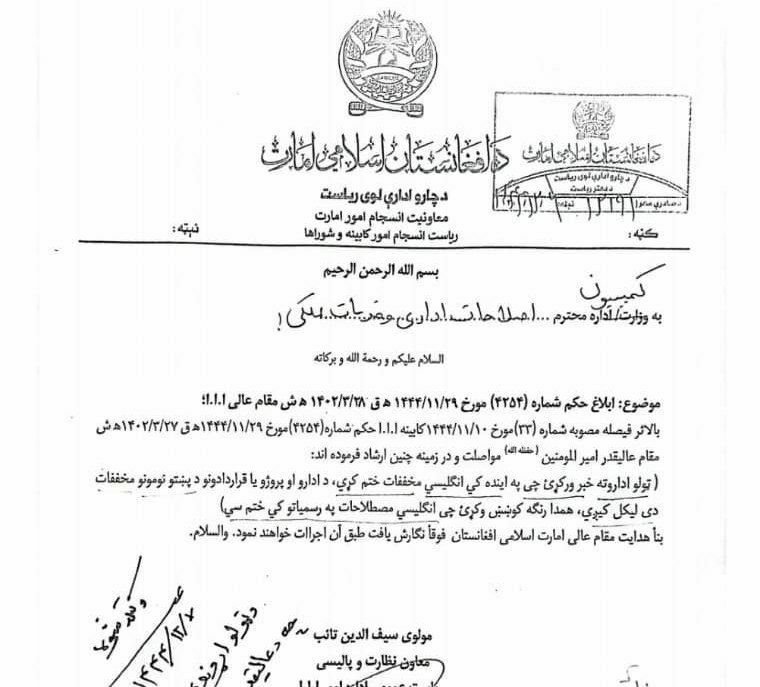 دافغانستان اسلامي امارت
دچارو ادارې لوی ریاست
معاونیت انسجام امور امارت
ریاست انسجام امور کابینه و شوراها
دافغانستان اسلامي امارت
دچارو ادارې لوی ریاست
د دفتر ریاست
ګڼه :
نېټه:
بسم الله الرحمن الرحیم
کمیسیون
به وزارت/اداره محترم ... اصلاحات اداری و خدمات ملکی !
السلام علیکم و رحمة الله و برکاته
موضوع: ابلاغ حکم شماره (۴۲۵۴) مورخ ۱۴۴۴/۱۱/۲۹ ه ق ۱۴۰۲/۳/۲۸ ه ش مقام عالی ا.ا.ا؛
بالاثر فیصله مصوبه شماره (۳۳)مورخ ۱۴۴۴/۱۱/۱۰کابینه ا.ا.ا حکم شماره(۴۲۵۴)مورخ ۱۴۴۴/۱۱/۲۹ه ق ۱۴۰۲/۳/۲۷ه ش
مقام عالیقدر امیر المومنین (حفظه الله) مواصلت و در زمینه چنین ارشاد فرموده اند:
( ټولو اداروته خبر ورکړئ چی په آینده کی انګلیسي مخففات ختم کړي، د ادارو او پروژو یا قراردادونو د پښتو نومونو مخففات
دی لیکل کیږي، همدا رنګه کوښښ وکړئ چی انګلیسي مصطلاحات په رسمیاتو کي ختم سي)
بنأ هدایت مقام عالی امارت اسلامی افغانستان فوقاً نگارش یافت طبق آن اجراات خواهند نمود. والسلام.
مولوی سیف الدین تائب
معاون نظارت و پالیسی